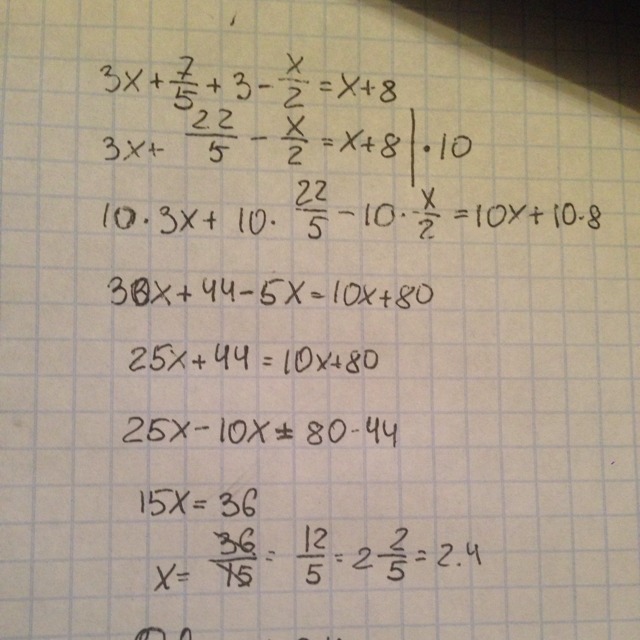 3x + 7/5 + 3 - x/2 = x+8
3x + 22/5 - x/2 = x+8 | · 10
10 · 3x + 10 · 22/5 - 10 · x/2 = 10x + 10 · 8
30x + 44 - 5x = 10x + 80
25x + 44 = 10x + 80
25x - 10x = 80 - 44
15x = 36
x = 36/15 = 12/5 = 2 2/5 = 2.4